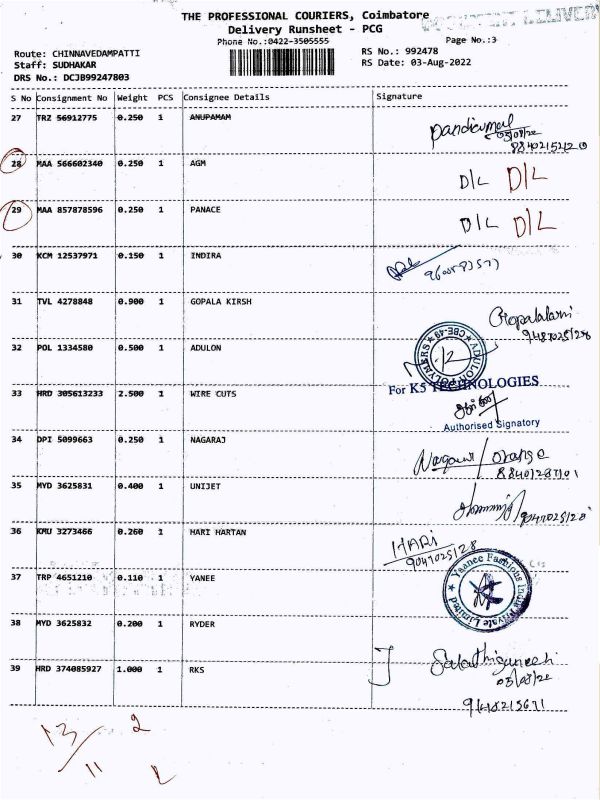 THE PROFESSIONAL COURIERS, Coimbatore
Delivery Runsheet - PCG
Phone No.:0422-3505555
Page No.:3
Route: CHINNAVEDAMPATTI
Staff: SUDHAKAR
DRS No.: DCJB99247803
RS No.: 992478
RS Date: 03-Aug-2022
S No Consignment No Weight PCS Consignee Details Signature
27 TRZ 56912775 0.250 1 ANUPAMAM
03/08/22
28 MAA 566602340 0.250 1 AGM D/L D/L
29 MAA 857878596 0.250 1 PANACE D/L D/L
30 KCM 12537971 0.150 1 INDIRA
31 TVL 4278848 0.900 1 GOPALA KIRSH
9487025128
32 POL 1334580 0.500 1 ADULON
33 HRD 305613233 2.500 1 WIRE CUTS
For K5 TECHNOLOGIES
Authorised Signatory
34 DPI 5099663 0.250 1 NAGARAJ
35 MYD 3625831 0.400 1 UNIJET
9047025128
36 KMU 3273466 0.260 1 HARI HARTAN HARI
9047025128
37 TRP 4651210 0.110 1 YANEE
Yaanee Fashions India Private Limited
38 MYD 3625832 0.200 1 RYDER
39 HRD 374085927 1.000 1 RKS
03/08/22
13/11 2